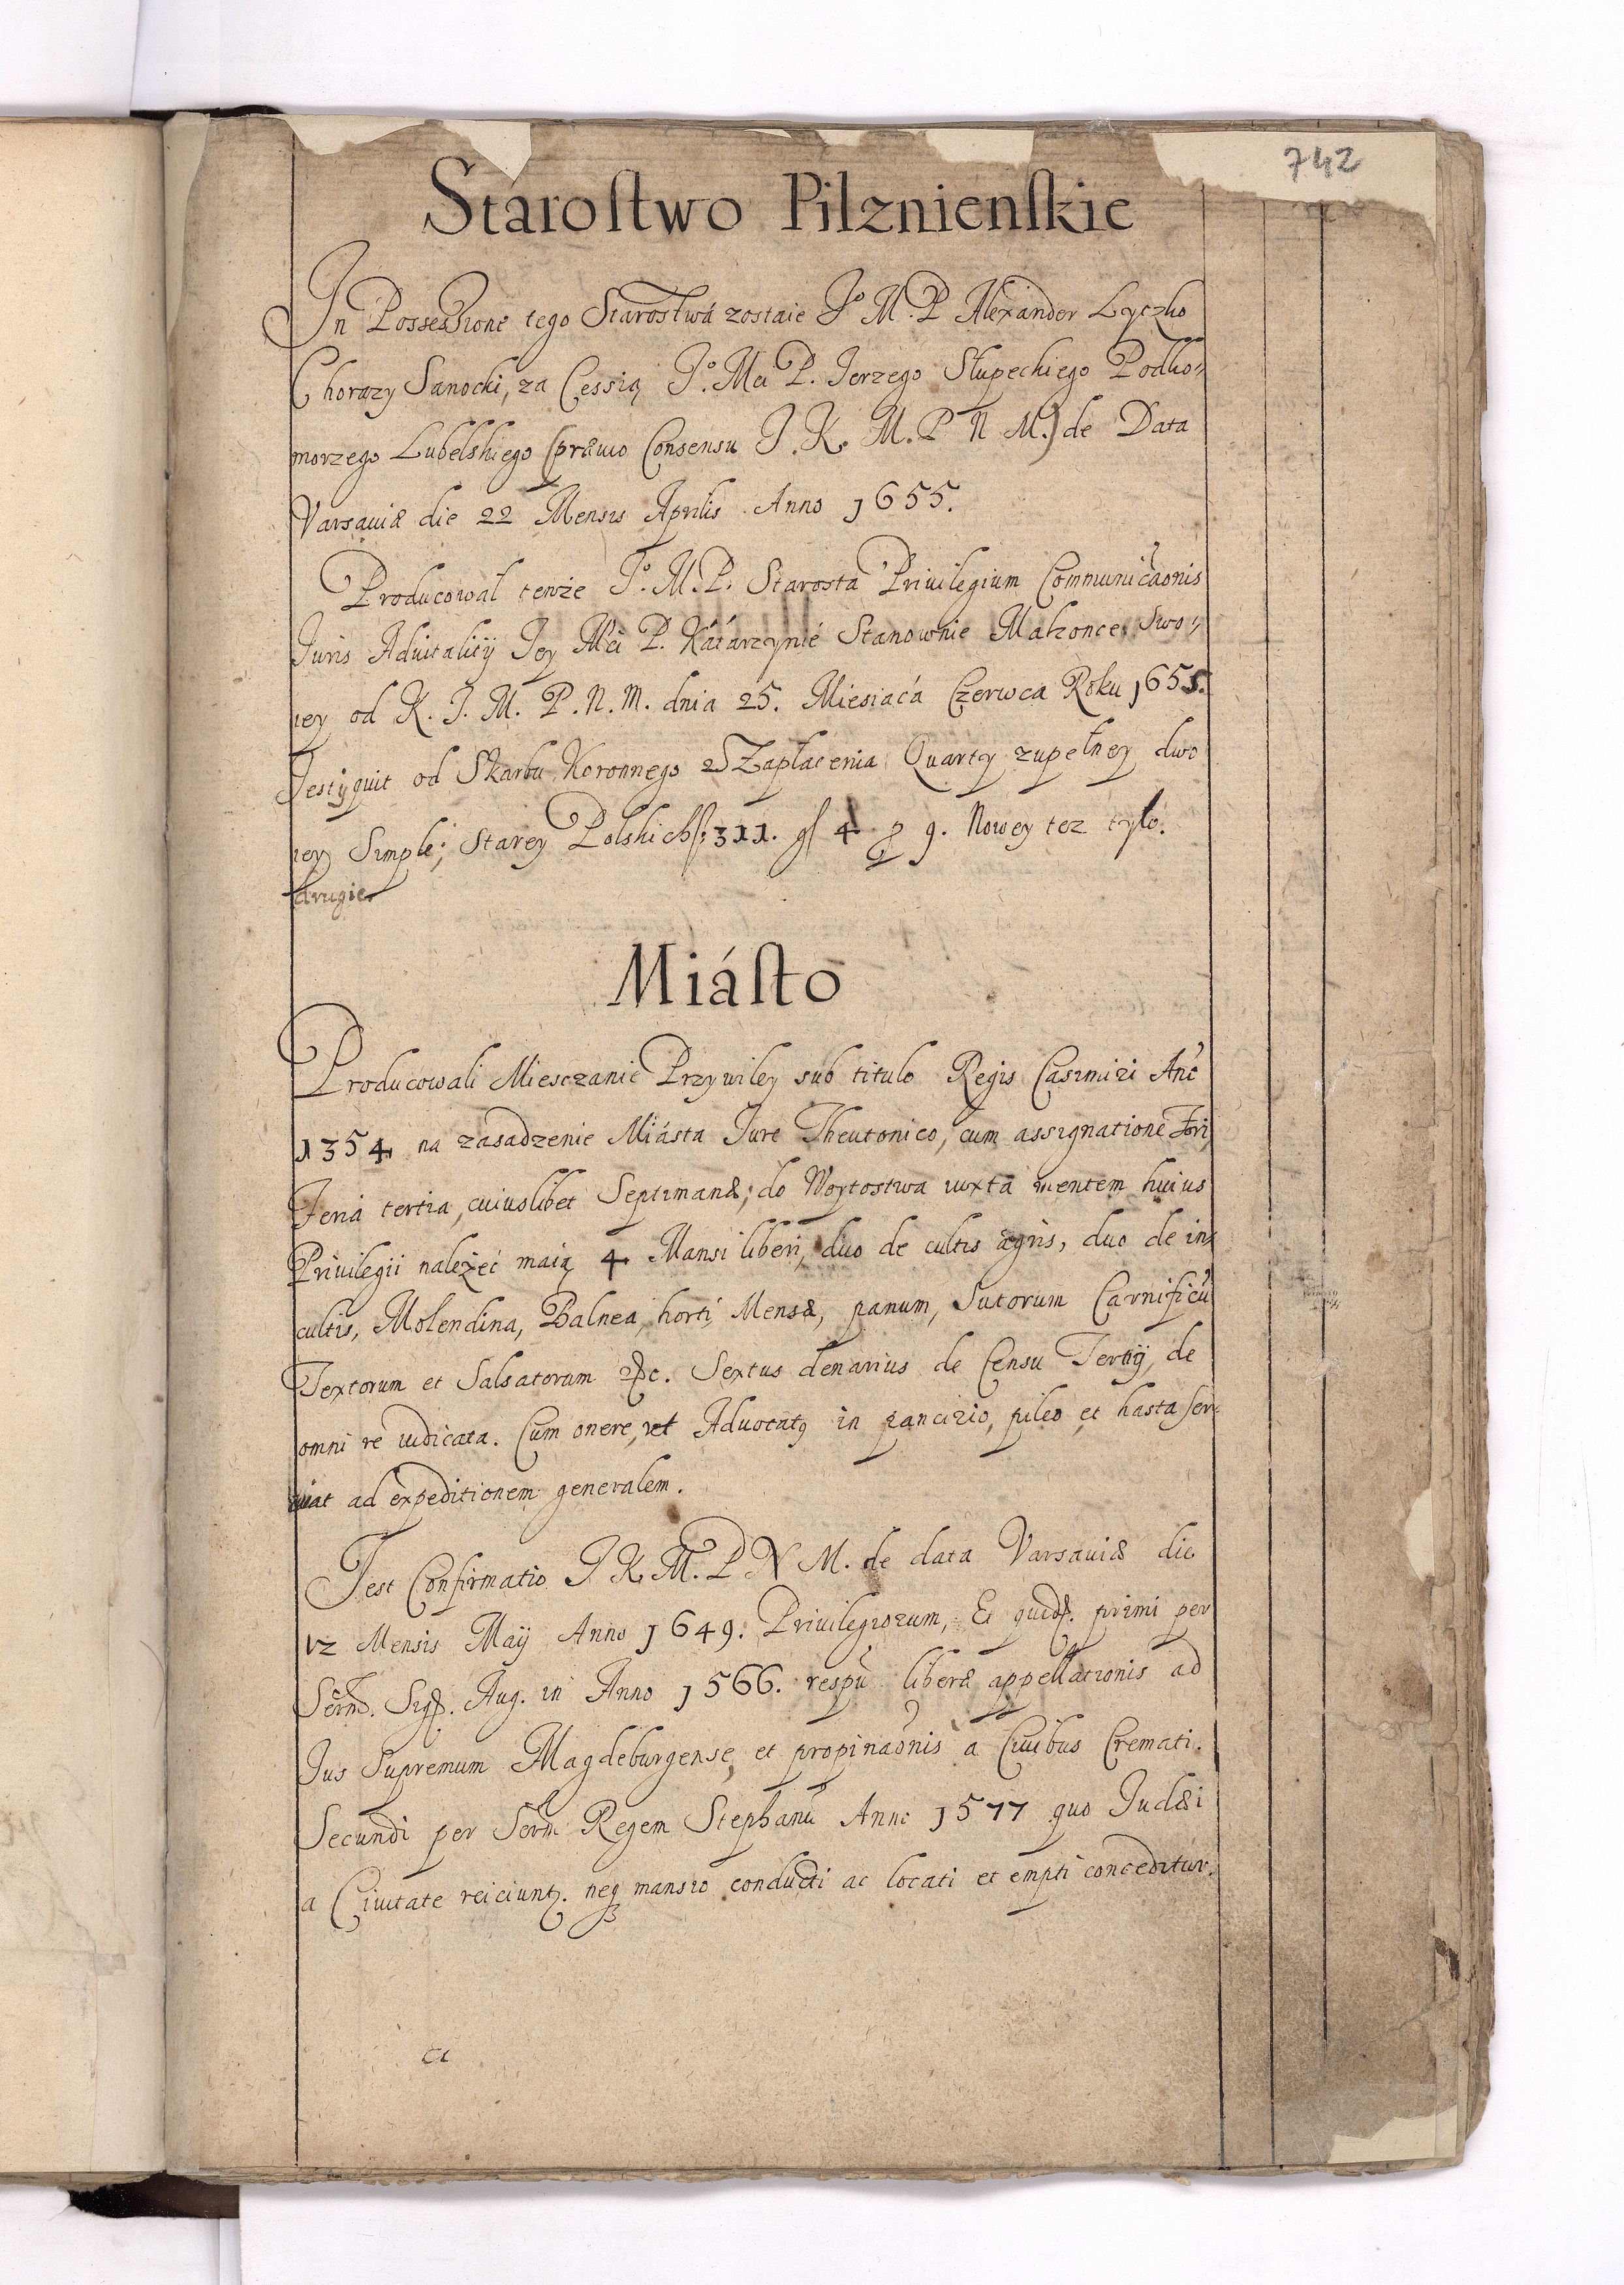 742
Staroſtwo Pilznienſkie
In Possessione tego Starostwá zostaie Jº M. P Alexander Łyczko
Chorązy Sanocki, za Cessią Jº. Mci P. Jerzego Słupeckiego Podko„
morzego Lubelskiego (præuio Consensu J. K. M. P N M.) de Data
Varsauiæ die 22 Mensis Aprilis Anno 1655.
Producował tenże Jº. M. P. Starosta Priuilegium Communicãonis
Iuris Aduitalitij Jey Mci P. Kátárzynié Stanownie Małzonce Swo„
iey od K. J. M. P. N. M. dnia 25. Miesiącá Czerwca Roku 1655.
Jest y quit od Skarbu Koronnego z Zapłacenia Quarty zupełney dwo
iey Simple; Starey Polskich 311. gſ 4 9. Nowey tez tyle.
drugie
Miáſto
Producowali Miesczanie Przywiley sub titulo Regis Casimiri Anº
1354 na zasadzenie Miásta Jure Theutonico, cum assignatione Fori,
Feria tertia, cuiuslibet Septimanæ; do Woytostwa iuxta mentem huius
Priuilegii należeć maią 4 Mansi liberi, duo de cultis agris, duo de in„
cultis, Molendina, Balnea, horti, Mensæ, panum, Sutorum Carnificũ
Textorum et Salsatorum &c. Sextus denarius de Censu Tertij, de
omni re iudicata. Cum onere, ut Aduocatꝰ in pancirio, pileo et hasta ser„
uiat ad expeditionem generalem.
Jest Confirmatio J. K. M. P N M. de data Varsauiæ die
12 Mensis Maij Anno 1649. Priuilegiorum, Et quid. primi per
Serm. Sig. Aug. in Anno 1566. respũ liberæ appellationis ad
Ius Supremum Magdeburgense, et propinaõnis à Ciuibus Cremati.
Secundi per Serm Regem Stephanũ Anno 1577 quo Judæi
a Ciuitate reiciunt. neqꝫ mansio conducti ac locati et empti conceditur.